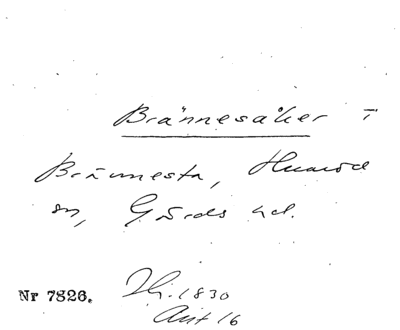 Brännesåker i
Brännesta, Huaröd
sn, Gärds hd.
Nr 7826. Jfr. 1830
Akt 16